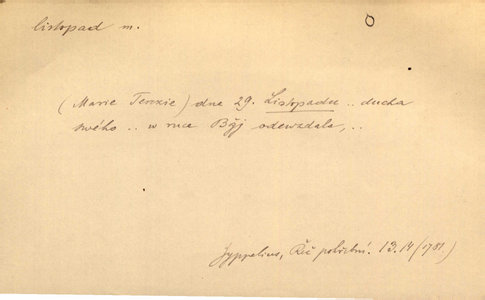 listopad m.
(Marie Terezie) dne 29. Listopadu .. ducha
swého .. w ruce Bžj odewzdala, ..
Zyppelius, Řeč pohřební. 13.14 (1781.)